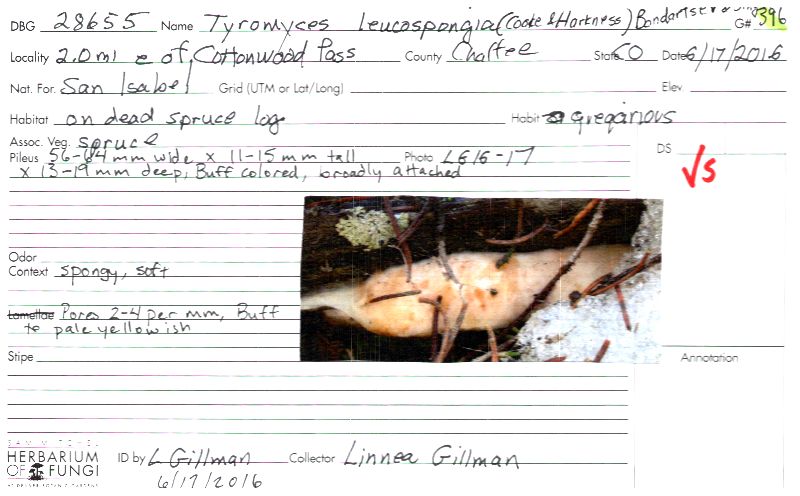 DBG 28655 Name Tyromyces leucospongia (Cooke & Harkness) Bondartsev & G# 396
Locality 2.0 mi e of Cottonwood Pass County Chaffee State CO Date 6/17/2016
Nat. For. San Isabel Grid (UTM or Lat/Long) Elev
Habitat on dead spruce log Habit gregarious
Assoc. Veg. spruce DS
Pileus 56-64 mm wide x 11-15 mm tall Photo LG16-17 √s
x 13-19 mm deep, Buff colored, broadly attached
Odor
Context spongy, soft
Lamellae Pores 2-4 per mm, Buff
to pale yellowish
Stipe Annotation
SAM MITCHEL
HERBARIUM
OF FUNGI
ID by L Gillman Collector Linnea Gillman
6/17/2016